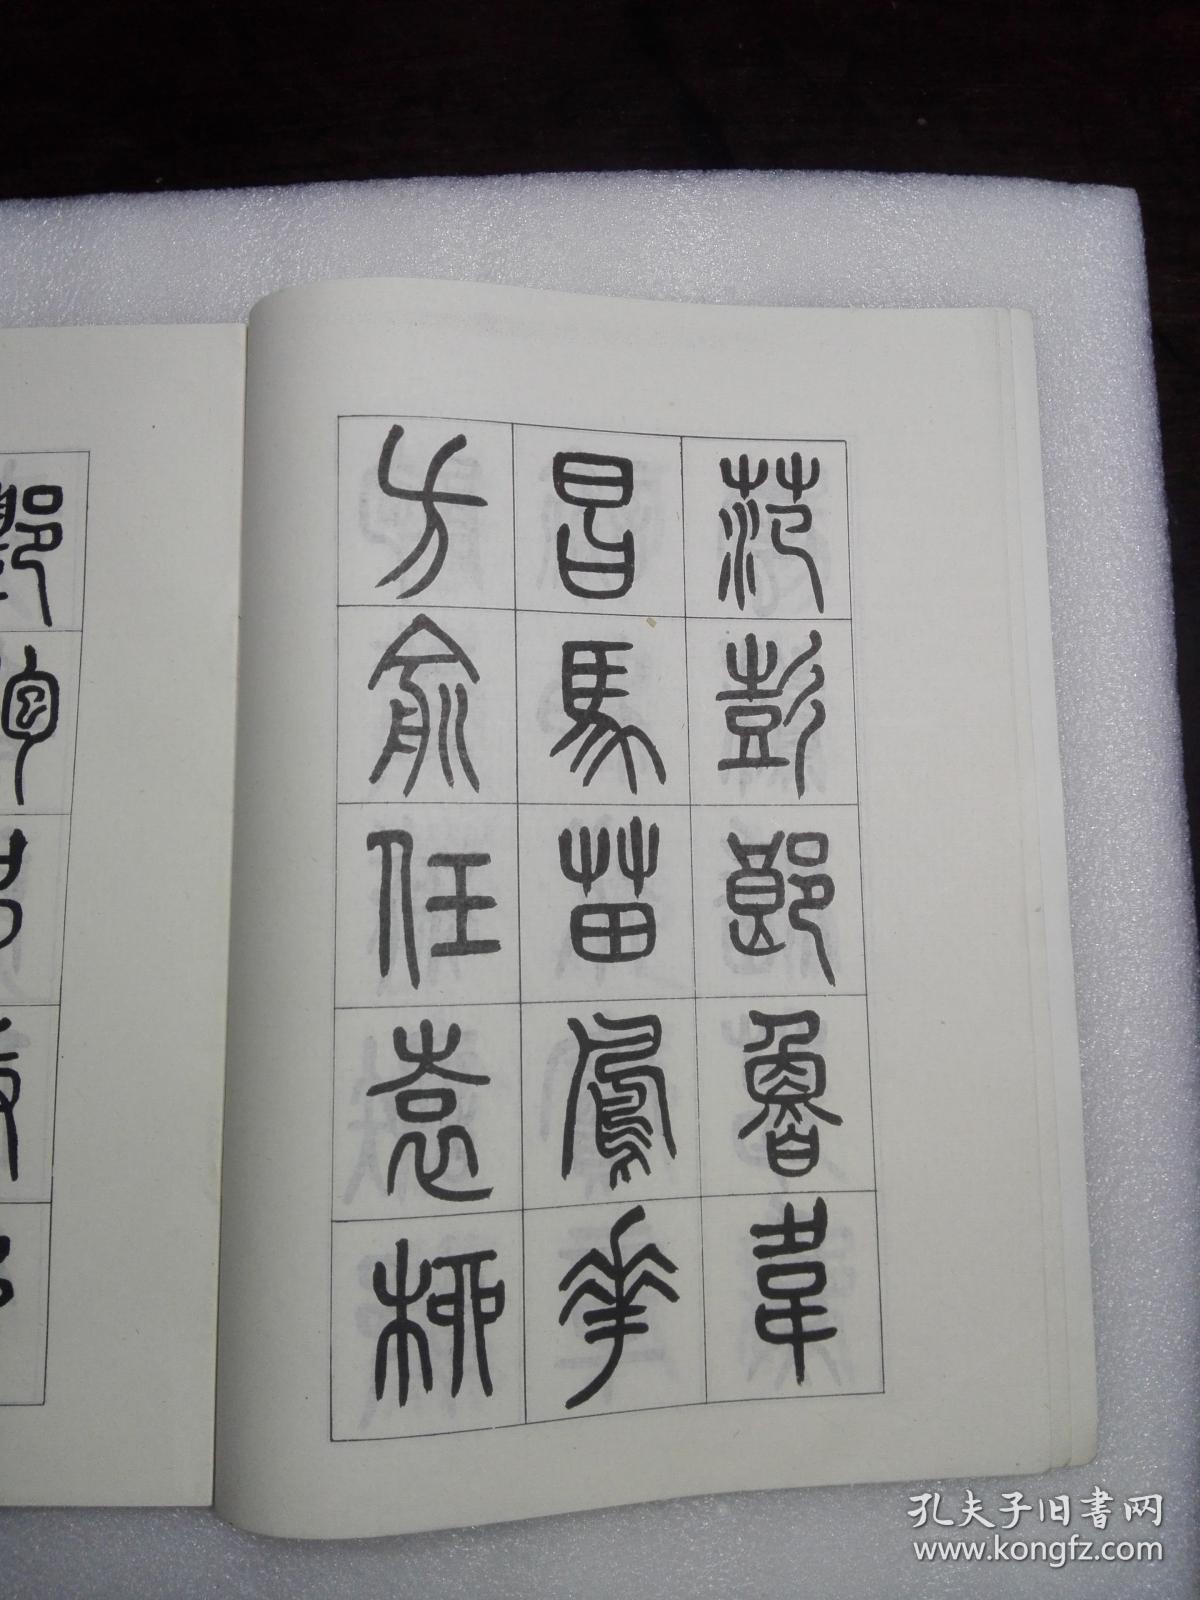 范彭郎魯韋
昌馬苗鳳花
方俞任袁柳
孔夫子旧书网
www.kongfz.com